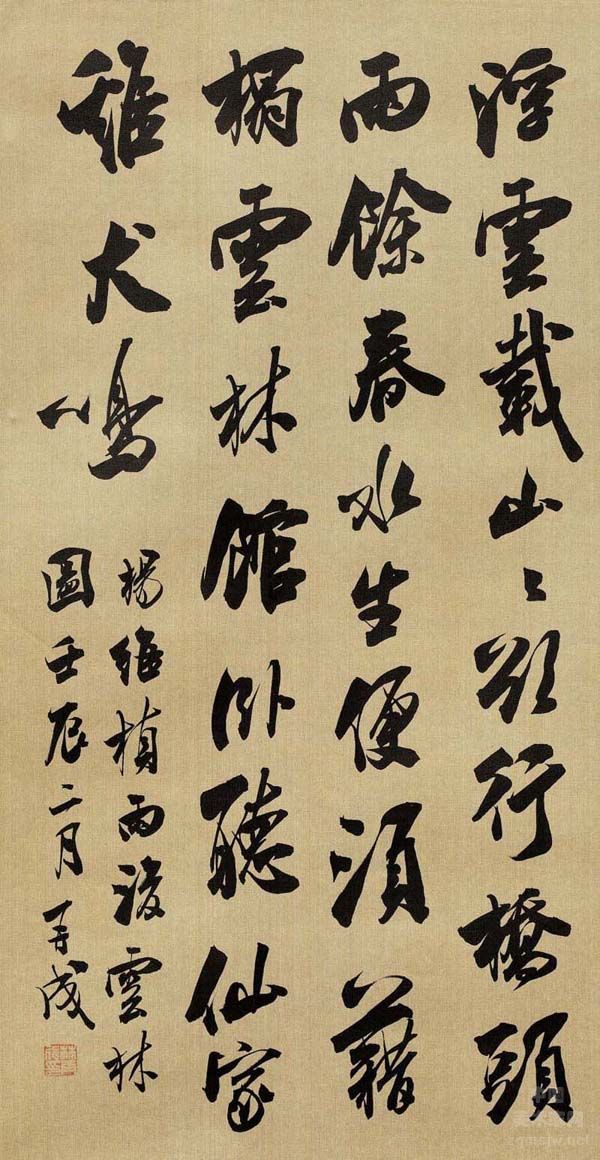 浮雲載山〻欲行橋頭
雨餘春水生便須藉
榻雲林館卧聽仙家
雞犬鳴
楊維楨雨後雲林
圖壬辰二月 成
zgmsjw.net